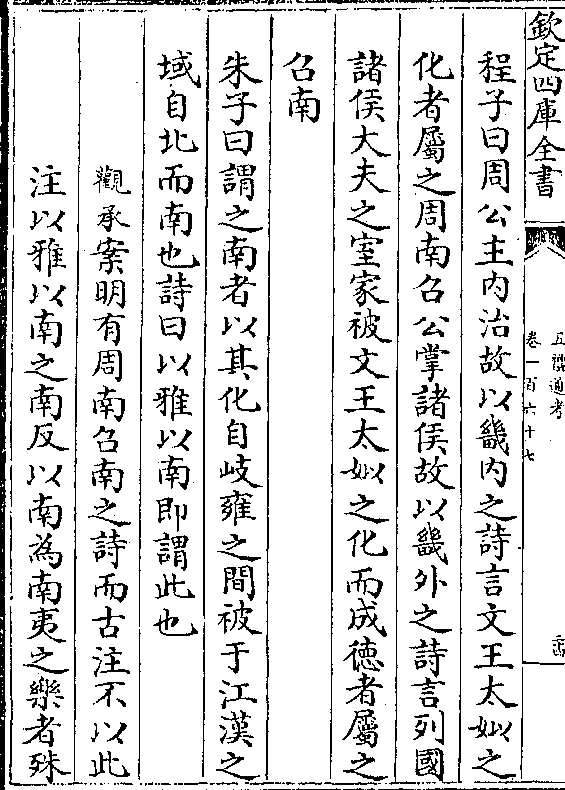 欽定四庫全書
五禮通考
卷一百六十七
程子曰周公主内治故以畿内之詩言文王太姒之
化者屬之周南召公掌諸侯故以畿外之詩言列國
諸侯大夫之室家被文王太姒之化而成德者屬之
召南
朱子曰謂之南者以其化自岐雍之間被于江漢之
域自北而南也詩曰以雅以南即謂此也
觀承案明有周南召南之詩而古注不以此
注以雅以南之南反以南為南夷之樂者殊